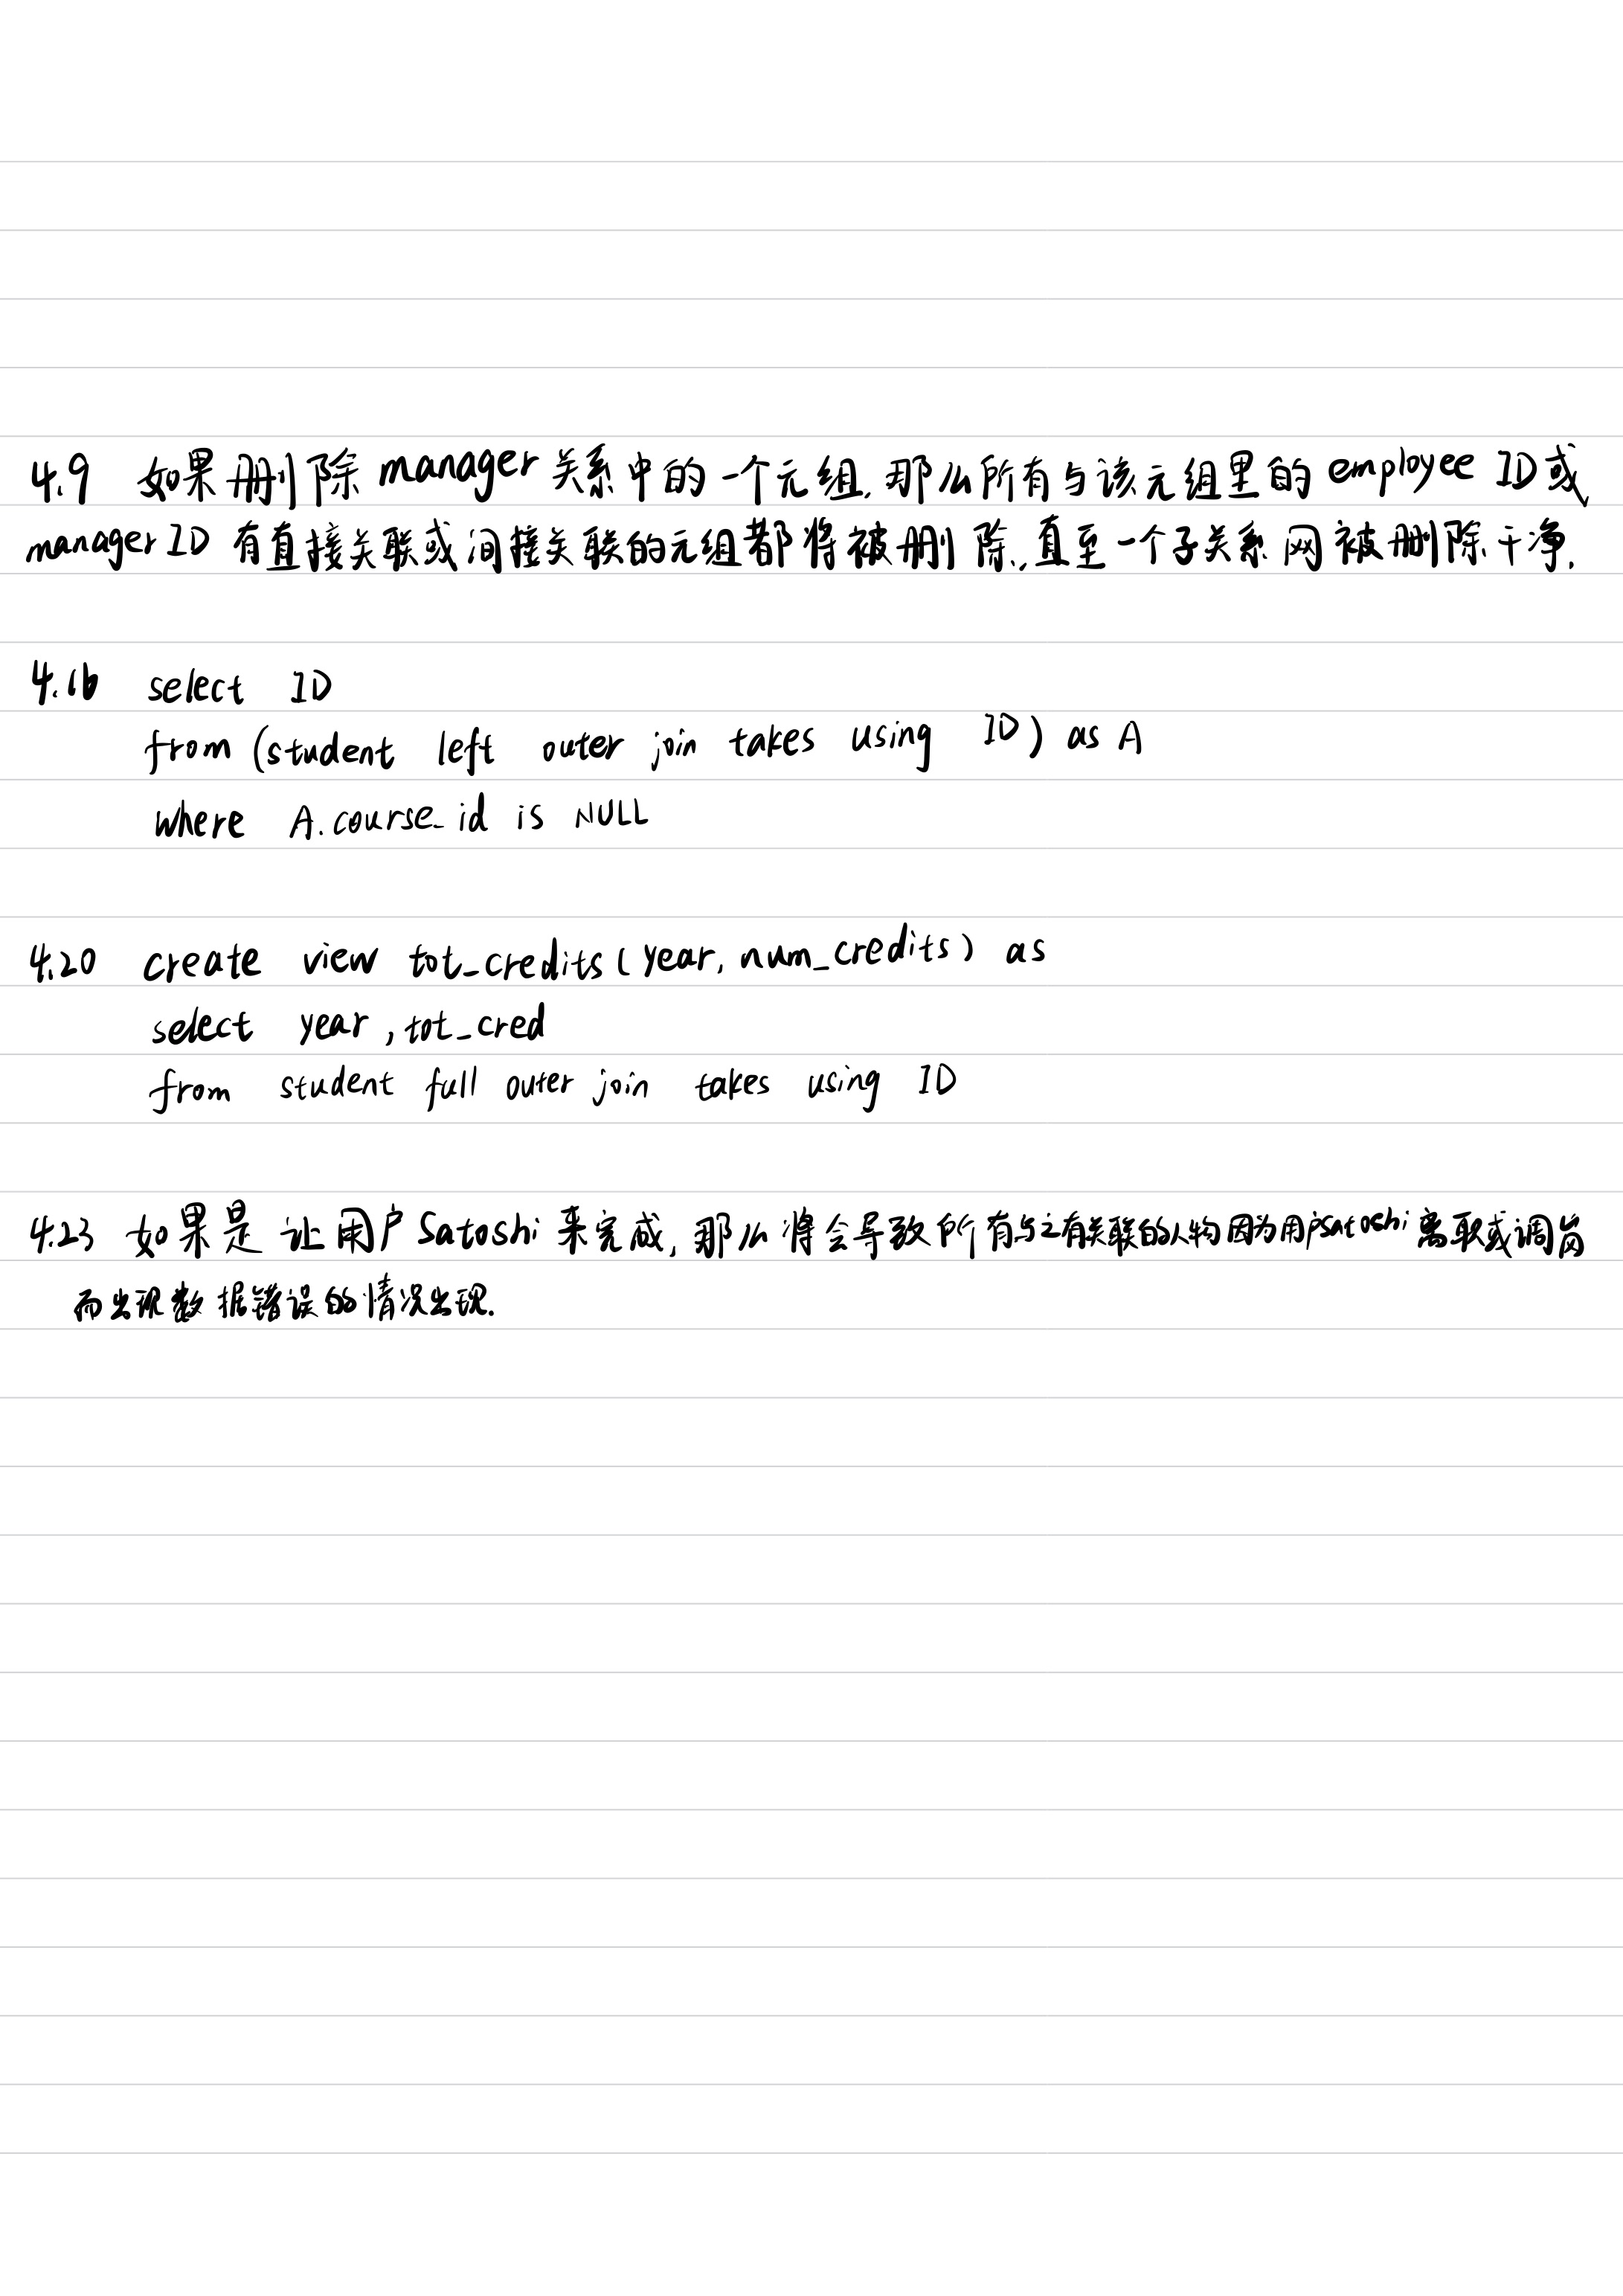 4.9 如果删除manager关系中的一个元组,那么所有与该元组里的employee ID或
manager ID 有直接关联或间接关联的元组都将被删除,直至一个子关系网被删除干净.
4.16 select ID
from (student left outer join takes using ID) as A
where A.course_id is NULL
4.20 create view tot_credits(year, num_credits) as
select year, tot_cred
from student full outer join takes using ID
4.23 如果是让用户Satoshi来完成,那么将会导致所有与之有关联的人物因为用户Satoshi离职或调岗
而出现数据错误的情况出现.